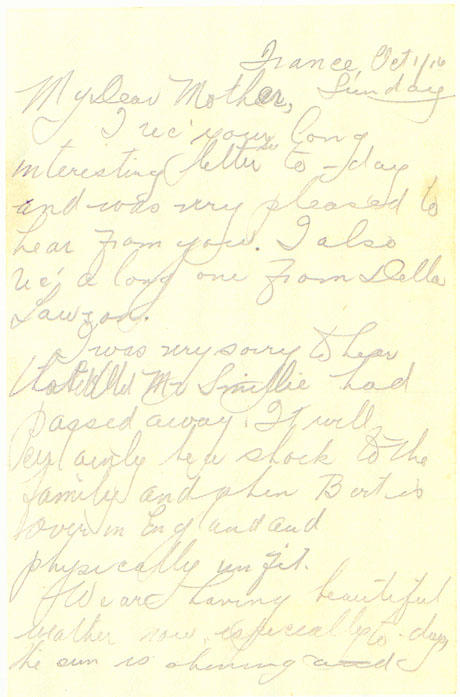 France, Oct 1/16
Sunday
My Dear Mother,
I rec' your long
interesting letter to-day
and was very pleased to
hear from you. I also
rec' a long one from Della
Lawson.
I was very sorry to hear
that Old Mr Smillie had
passed away. It will
certainly be a shock to the
family and then Bert is
over in England and
physically unfit.
We are having beautiful
weather now, especially to-day,
the sun is shining and